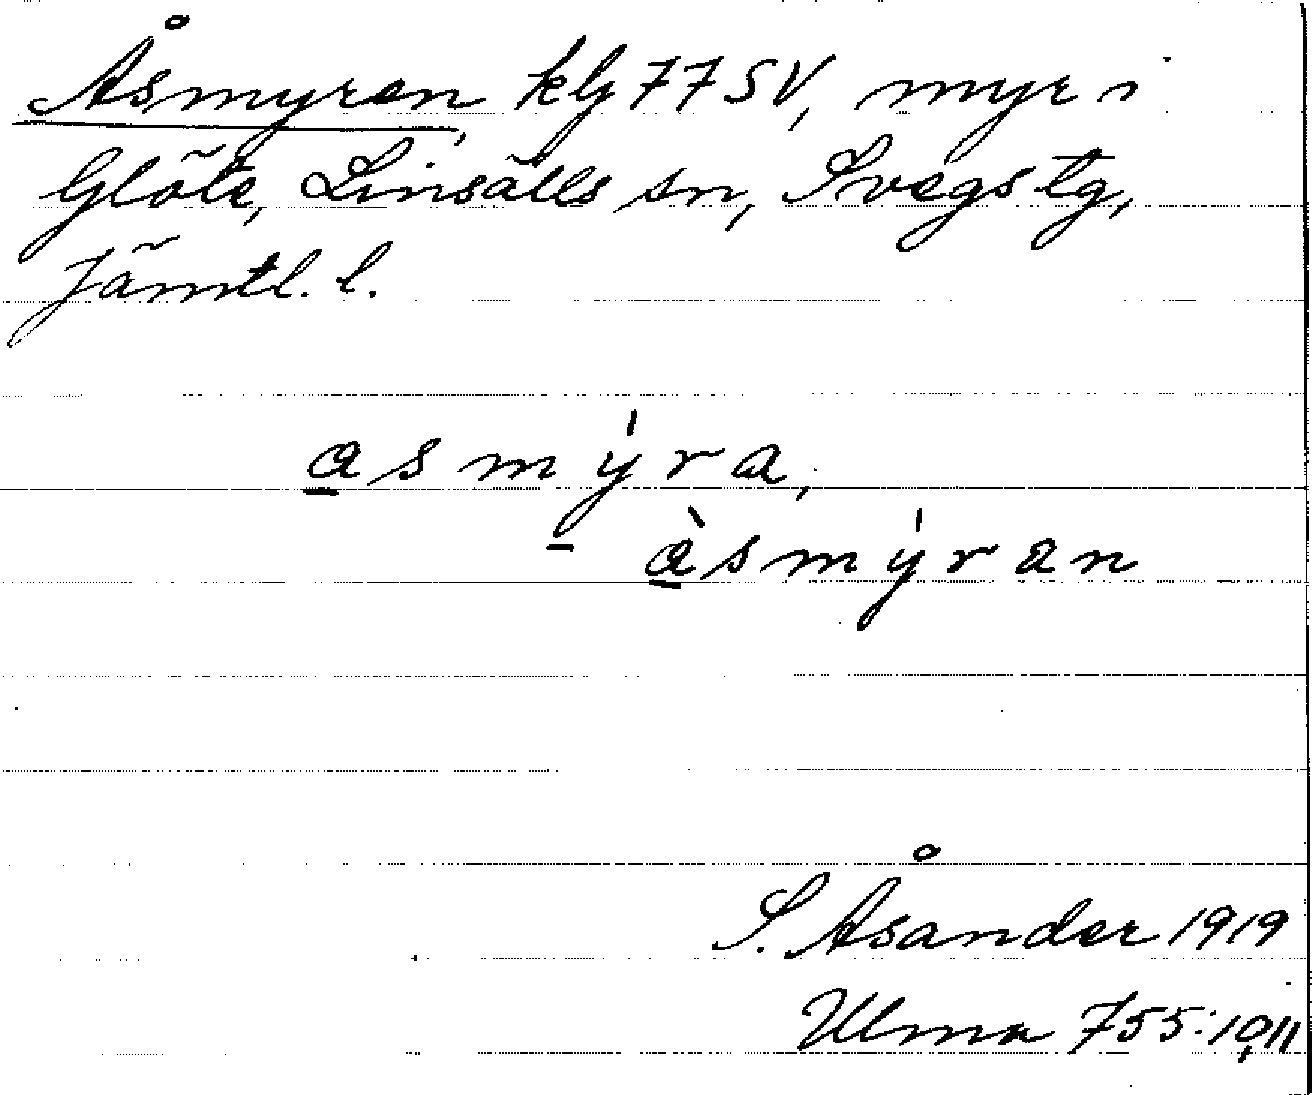 Åsmyren, kbj 77 SV, myr i
Glöte, Linsälls sn, Svegs tg,
Jämtl. l.
a̲smýra,
à̲smýran
S. Åsander 1919
Ulma 755:10,11